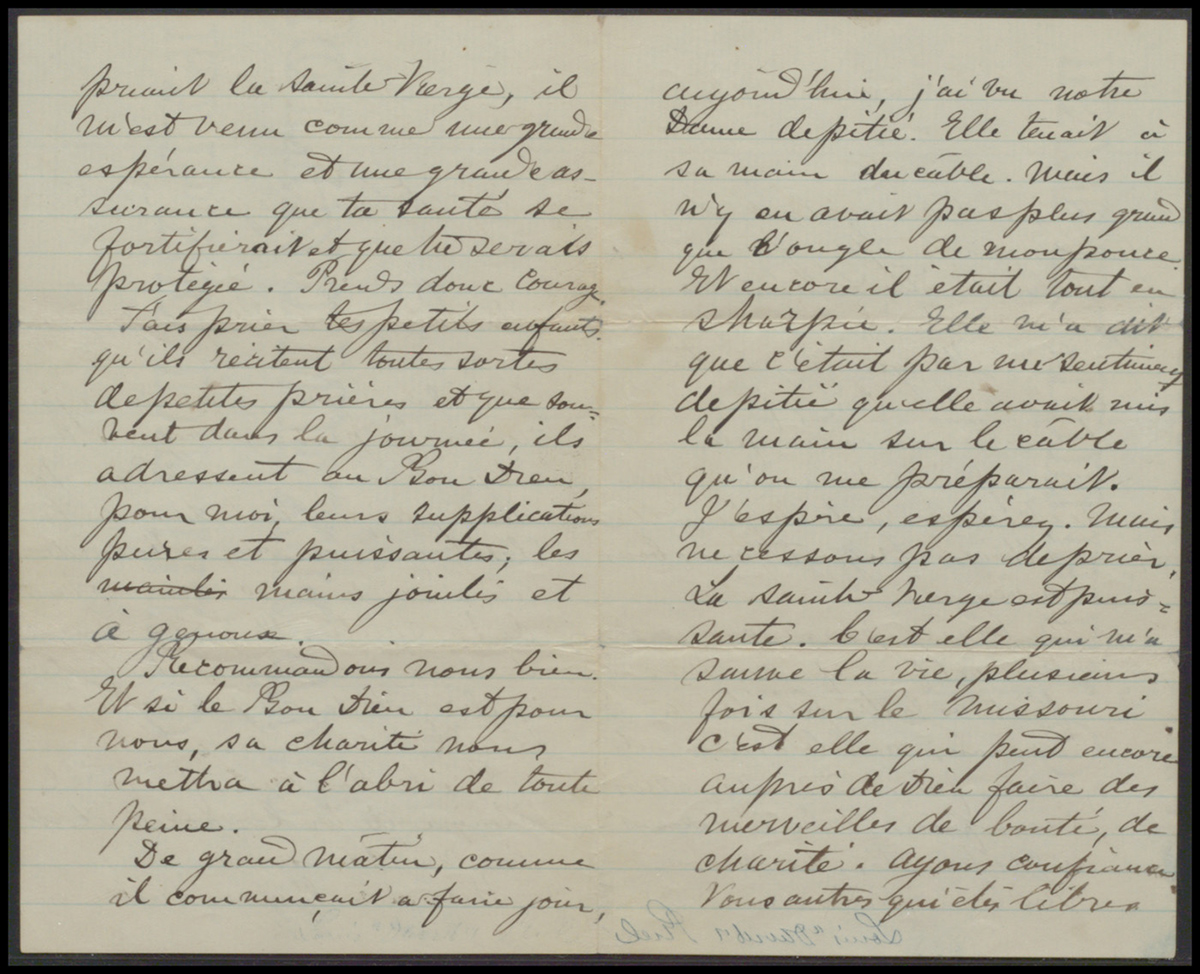 priant la Sainte Vierge, il
m'est venu comme une grande
espérance et une grande as-
surance que ta santé se
fortifierait et que tu serais
protégée. Prends donc courage.
Fais prier les petits enfants.
qu'ils récitent toutes sortes
de petites prières et que sou=
vent dans la journée, ils
adressent au Bon Dieu,
pour moi, leurs supplications
pures et puissantes, les
mains jointes et
à genoux.
Recommandons nous bien.
Et si le Bon Dieu est pour
nous, sa charité nous
mettra à l'abri de toute
peine.
De grand mâtin, comme
il commençait a faire jour,
aujourd'hui, j'ai vu notre
Dame de pitié. Elle tenait à
sa main du câble. Mais il
n'y en avait pas plus grand
que l'ongle de mon pouce.
Et encore il était tout en
sharpie. Elle m'a dit
que c'était par un sentiment
de pitié qu'elle avait mis
la main sur le câble
qu'on me préparait.
J'espère, espérez. Mais
ne cessons pas de prier.
La Sainte Vierge est puis=
sante. C'est elle qui m'a
sauvé la vie, plusieurs
fois sur le Missouri
c'est elle qui peut encore
auprès de Dieu faire des
merveilles de bonté, de
charité. Ayons confiance
Vous autres qui êtes libres
Louis "David" Riel